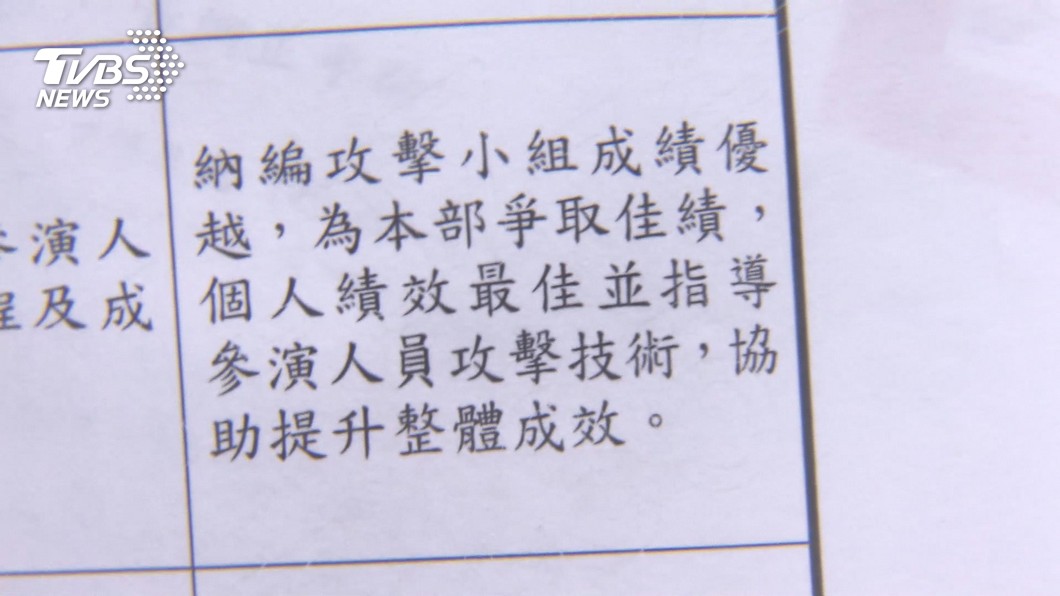 TVBS
NEWS
演人
及成
納編攻擊小組成績優
越，為本部爭取佳績，
個人績效最佳並指導
參演人員攻擊技術，協
助提升整體成效。